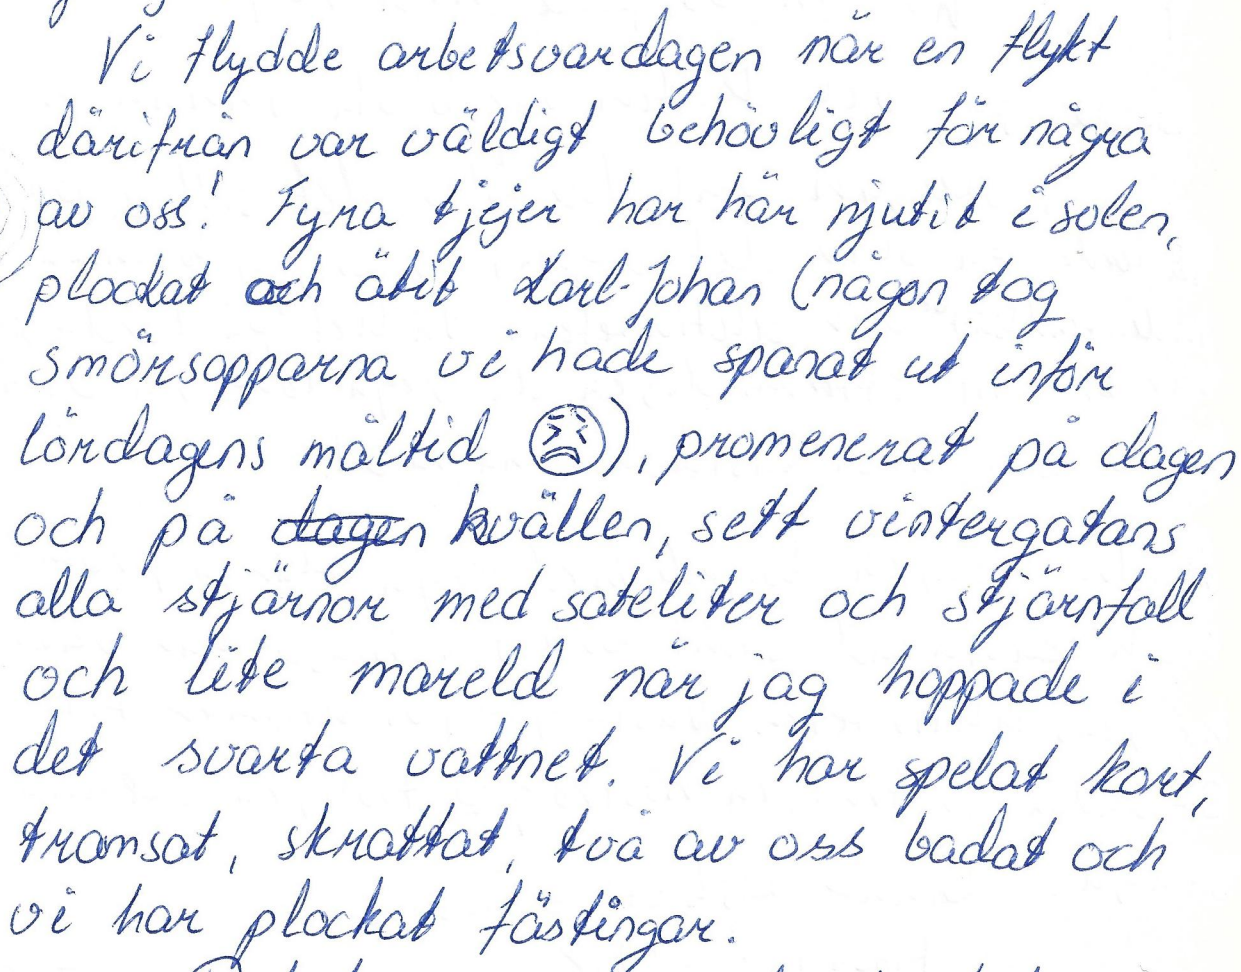 Vi flydde arbetsvardagen när en flykt
därifrån var väldigt behövligt för några
av oss! Fyra tjejer har här njutit i solen,
plockat och ätit Karl-Johan (någon tog
smörsopparna vi hade spanat ut inför
lördagens måltid 😣), promenerat på dagen
och på dagen kvällen, sett vintergatans
alla stjärnor med sateliter och stjärnfall
och lite mareld när jag hoppade i
det svarta vattnet. Vi har spelat kort,
tramsat, skrattat, två av oss badat och
vi har plockat fästingar.